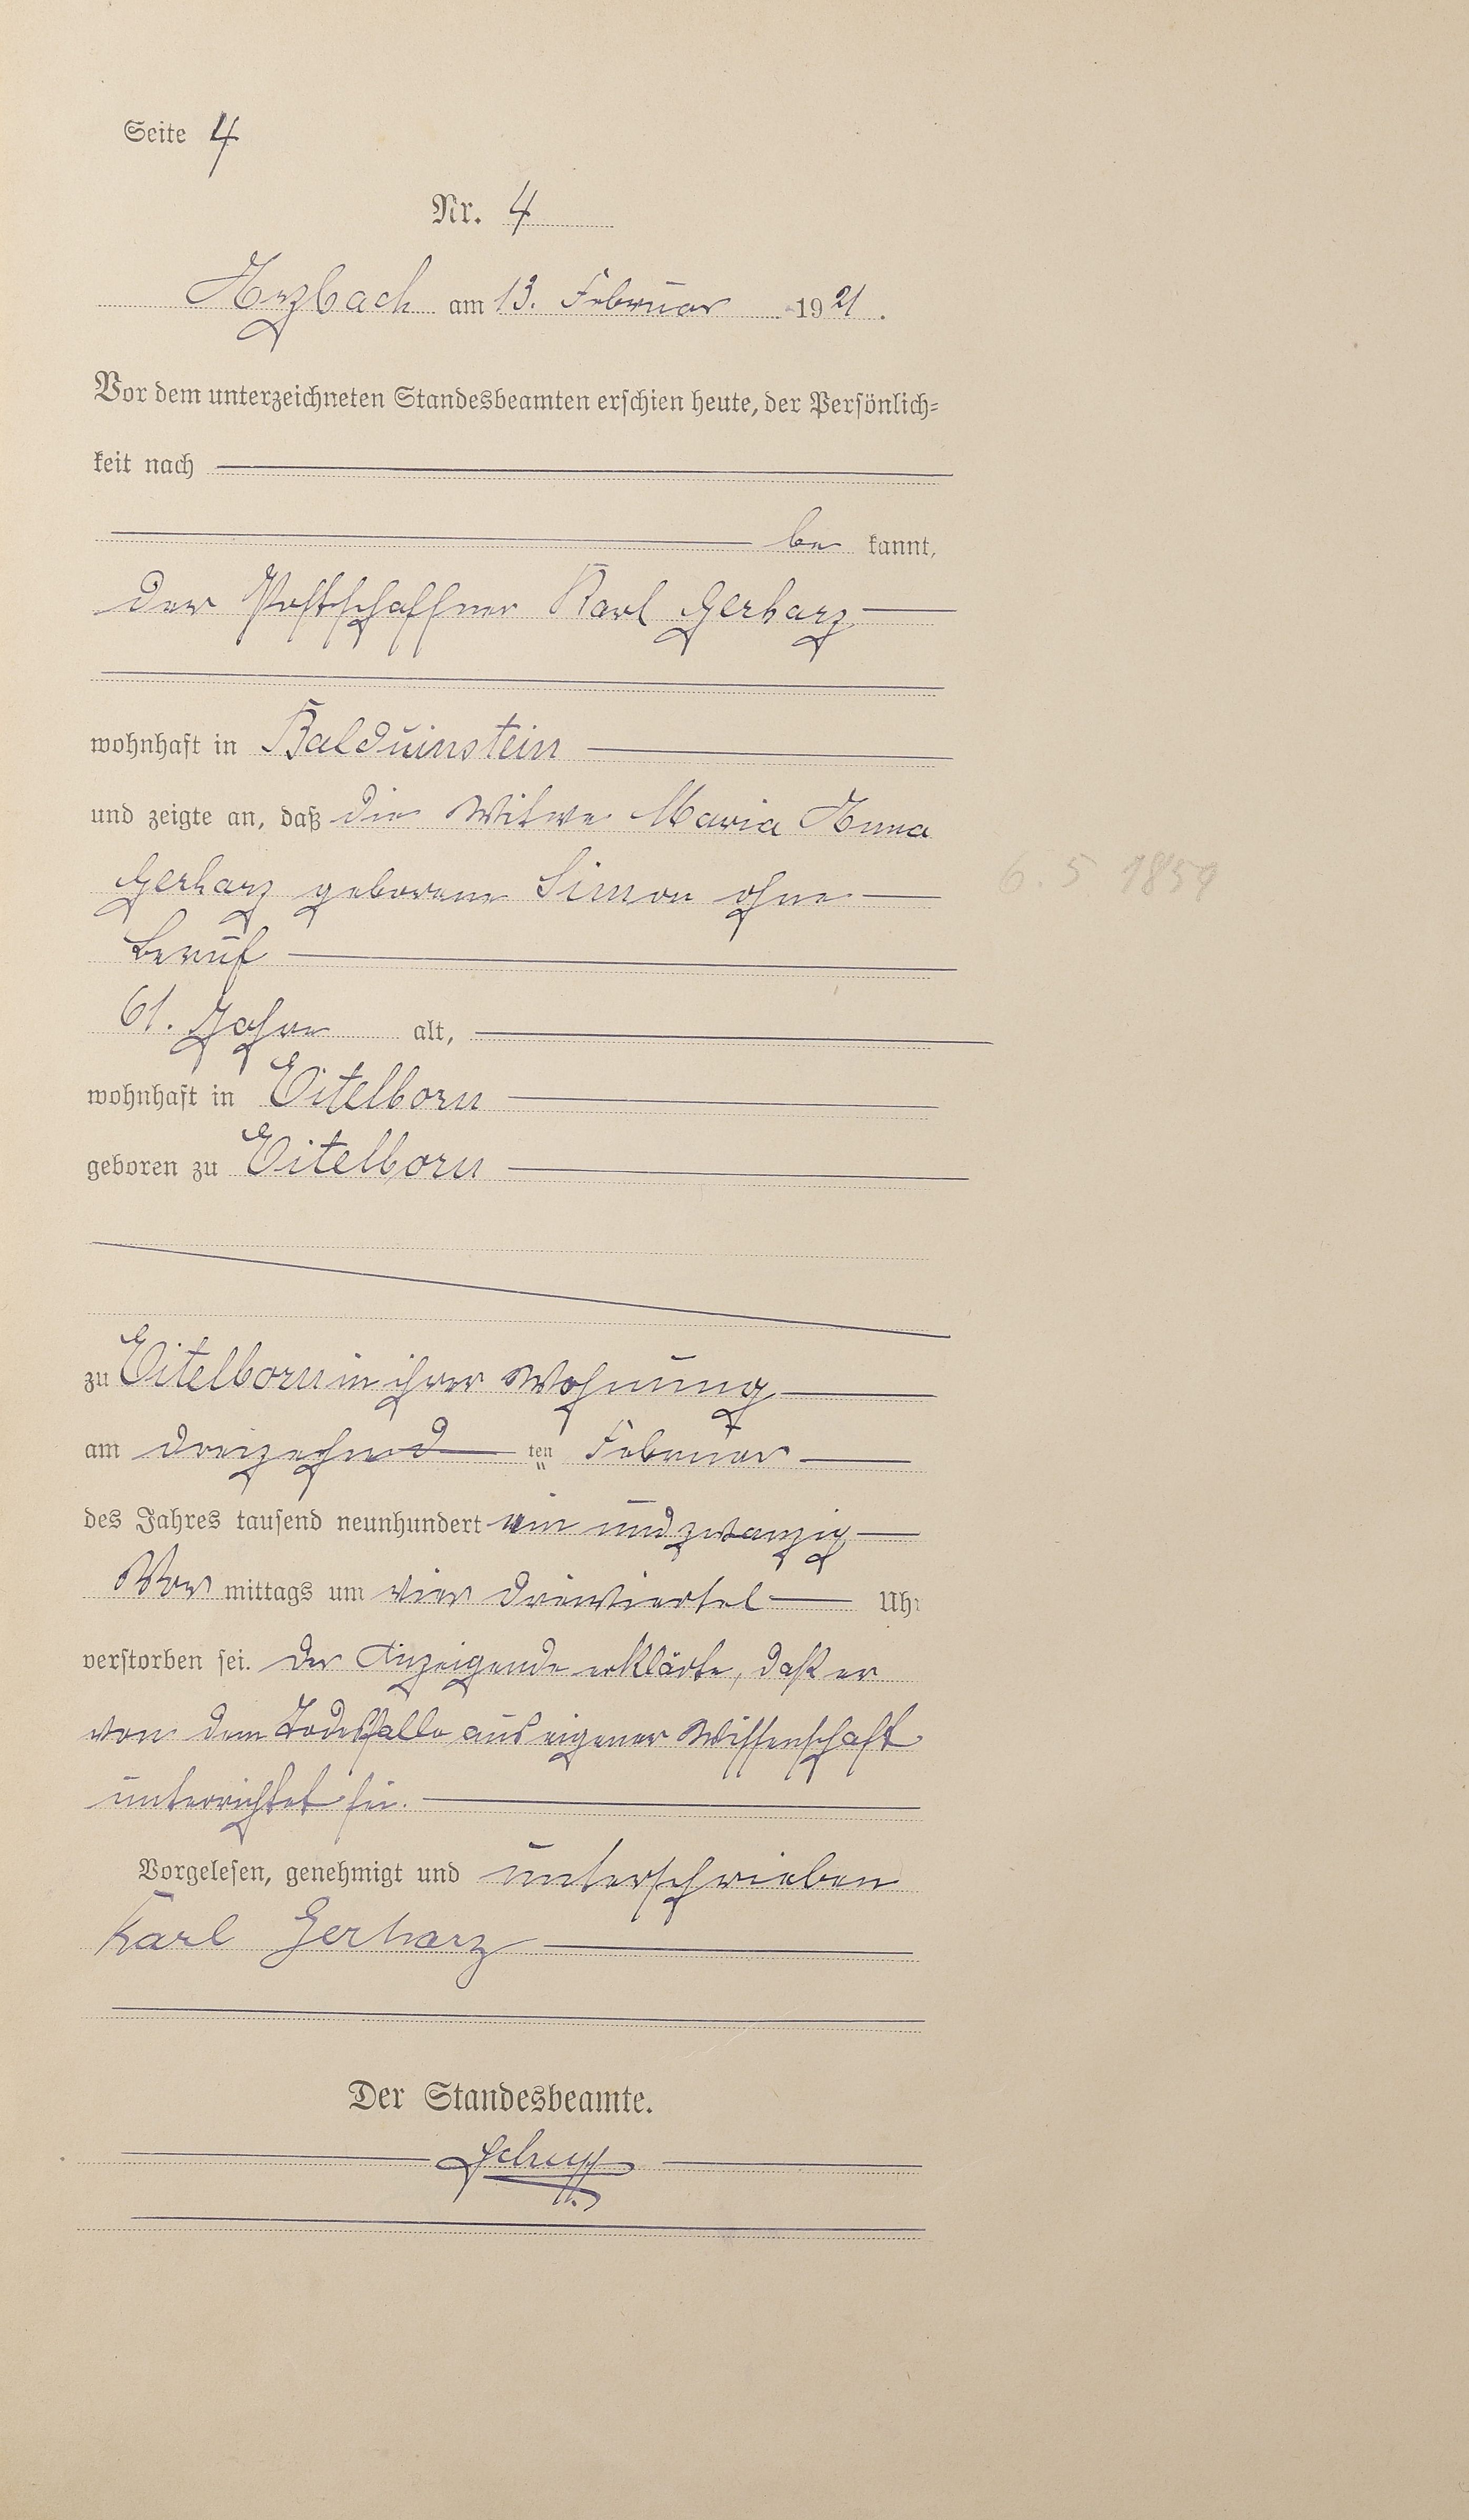 Seite 4
Nr. 4
Arzbach am 13. Februar 1921.
Vor dem unterzeichneten Standesbeamten erschien heute, der Persönlich=
keit nach
be kannt,
der Postschaffner Karl Gerharz
wohnhaft in Balduinstein
und zeigte an, daß die Witwe Maria Anna
Gerharz geborene Simon ohne
Beruf
6. 5 1859
61. Jahre alt,
wohnhaft in Eitelborn
geboren zu Eitelborn
zu Eitelborn in ihrer Wohnung
am dreizehnd ten Februar
des Jahres tausend neunhundert ein und zwanzig
Vor mittags um vier dreiviertel Uhr
verstorben sei. Der Anzeigende erklärte, daß er
von dem Todesfalle aus eigener Wissenschaft
unterrichtet sei.
Vorgelesen, genehmigt und unterschrieben
Karl Gerharz
Der Standesbeamte.